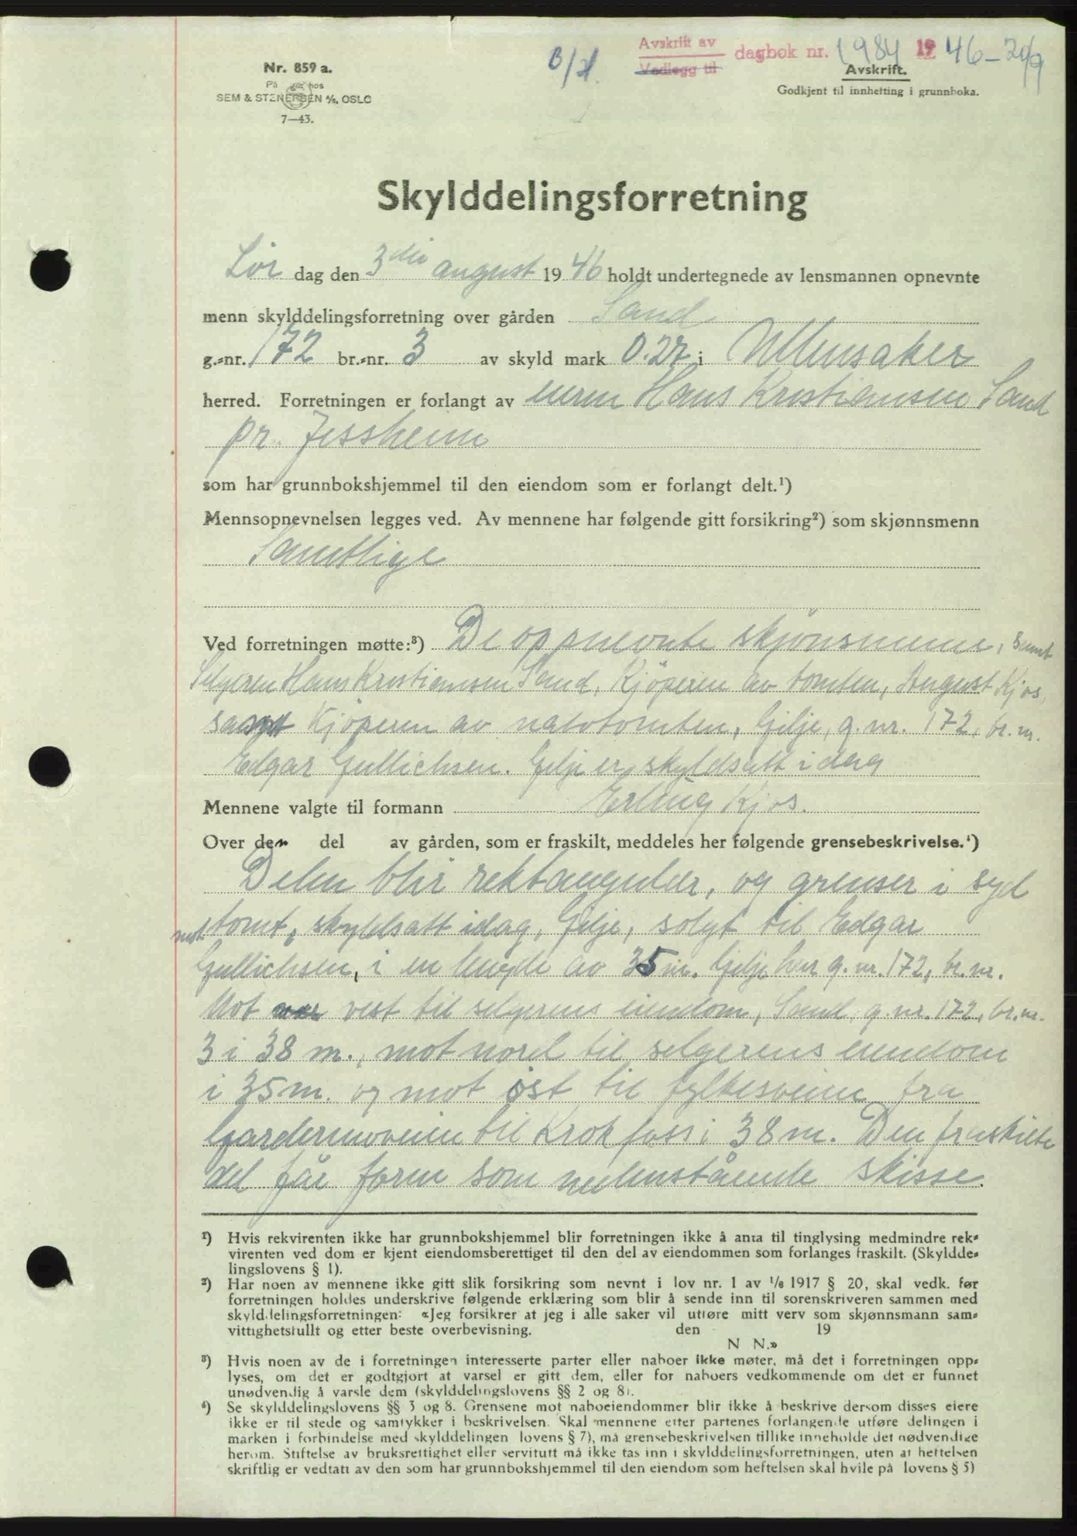 Avskrift av
Vedlegg til
dagbok nr. 1984 1946-20/9
B/4.
Nr. 859 a.
På hos
SEM & STENERSEN A/S, OSLO
7—43.
Avskrift.
Godkjent til innhefting i grunnboka.
Skylddelingsforretning
Lør dag den 3die august 1946 holdt undertegnede av lensmannen opnevnte
menn skylddelingsforretning over gården Sand
g.-nr. 172 br.-nr. 3 av skyld mark 0.27 i Ullensaker
herred. Forretningen er forlangt av Hans Kristiansen Sand
pr. Jessheim
som har grunnbokshjemmel til den eiendom som er forlangt delt.¹)
Mennsopnevnelsen legges ved. Av mennene har følgende gitt forsikring²) som skjønnsmenn
Samtlige
Ved forretningen møtte:³) De oppnevnte skjønsmenn, samt
Selgeren Hans Kristiansen Sand, Kjöperen av tomten, August Kjos,
samt Kjöperen av nabotomten, Gilje, g.nr. 172, br.nr.
Edgar Gullichsen. Gilje er skyldsatt i dag
Mennene valgte til formann Erling Kjos.
Over den del av gården, som er fraskilt, meddeles her følgende grensebeskrivelse.⁴)
Delen blir rektangulær, og grenser i syd
mot tomt, skyldsatt idag, Gilje, solgt til Edgar
Gullichsen, i en lengde av 35 m. Gilje har g.nr. 172, br.nr.
Mot vest til selgerens eiendom, Sand, g.nr. 172, br.nr.
3 i 38 m., mot nord til selgerens eiendom
i 35 m. og mot øst til fylkesveien fra
Gardermoveien til Krokfoss i 38 m. Den fraskilte
del får form som nedenstående skisse.
¹) Hvis rekvirenten ikke har grunnbokshjemmel blir forretningen ikke å anta til tinglysing medmindre rek-
virenten ved dom er kjent eiendomsberettiget til den del av eiendommen som forlanges fraskilt. (Skyldde-
lingslovens § 1).
²) Har noen av mennene ikke gitt slik forsikring som nevnt i lov nr. 1 av 1/6 1917 § 20, skal vedk. før
forretningen holdes underskrive følgende erklæring som blir å sende inn til sorenskriveren sammen med
skylddelingsforretningen: «Jeg forsikrer at jeg i alle saker vil utføre mitt verv som skjønnsmann sam-
vittighetsfullt og etter beste overbevisning. den 19
N N.»
³) Hvis noen av de i forretningen interesserte parter eller naboer ikke møter, må det i forretningen opp-
lyses, om det er godtgjort at varsel er gitt dem, eller for naboers vedkommende om det er funnet
unødvendig å varsle dem (skylddelingslovens §§ 2 og 8).
⁴) Se skylddelingslovens §§ 3 og 8. Grensene mot naboeiendommer blir ikke å beskrive dersom disses eiere
ikke er til stede og samtykker i beskrivelsen. Skal mennene etter partenes forlangende utføre delingen i
marken i forbindelse med skylddelingen lovens § 7), må grensebeskrivelsen tillike inneholde det nødvendige
herom. Stiftelse av bruksrettighet eller servitutt må ikke tas inn i skylddelingsforretningen, uten at heftelsen
skriftlig er vedtatt av den som har grunnbokshjemmel til den eiendom som heftelsen skal hvile på lovens § 5)